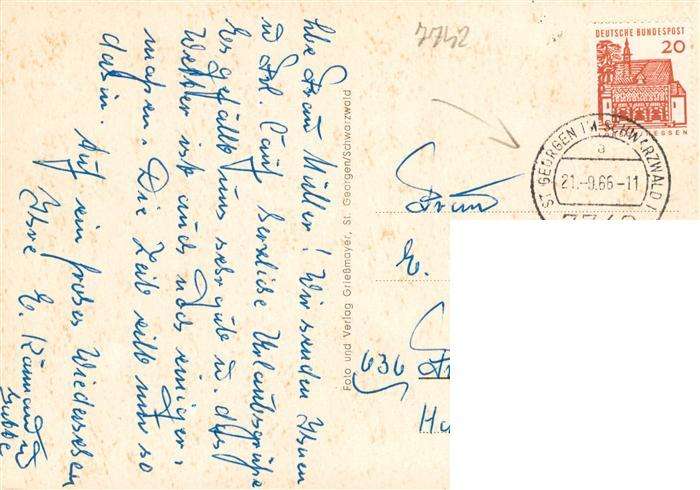 Lbe Frau Müller! Wir senden Ihnen
u Frl. herzliche Urlaubsgrüße
Es gefällt uns sehr gut u. das
Wetter ist auch noch einiger-
maßen. Die Zeit eilt nur so
dahin. Auf ein frohes Wiedersehen
Ihre E.
Foto und Verlag Grießmayer, St. Georgen/Schwarzwald
7742
DEUTSCHE BUNDESPOST
20
ESSEN
ST GEORGEN IM SCHWARZWALD
a
21.-9.66-11
Frau
E.
636